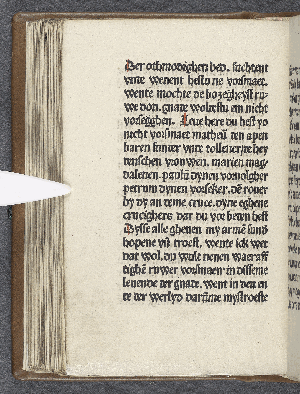 Der othmodighen
unde wenent hestu ne vorsmaet.
wente mochte de bozeghyst ru
we don. gnade woldestu em nicht
vorsegghen. Leue here du hest yo
nicht vorsmaet matheū den apen
baren sunder unde tollener de hey
denschen vrouwen. marien mag
dalenen. paulū dynen voruolgher
petrum dynen vorseker. dē rouer
by dy an deme cruce. dyne eghene
crucighers dar du vor beden hest
Dysse alle gheuen my armē sund
hopene vn troest. wente ick wet
dat wol. du wult nenen waeraff
tighē ruwer vorsmaen in disseme
leuende der gnade. went in den en
de der werlyd darūme mystroeste